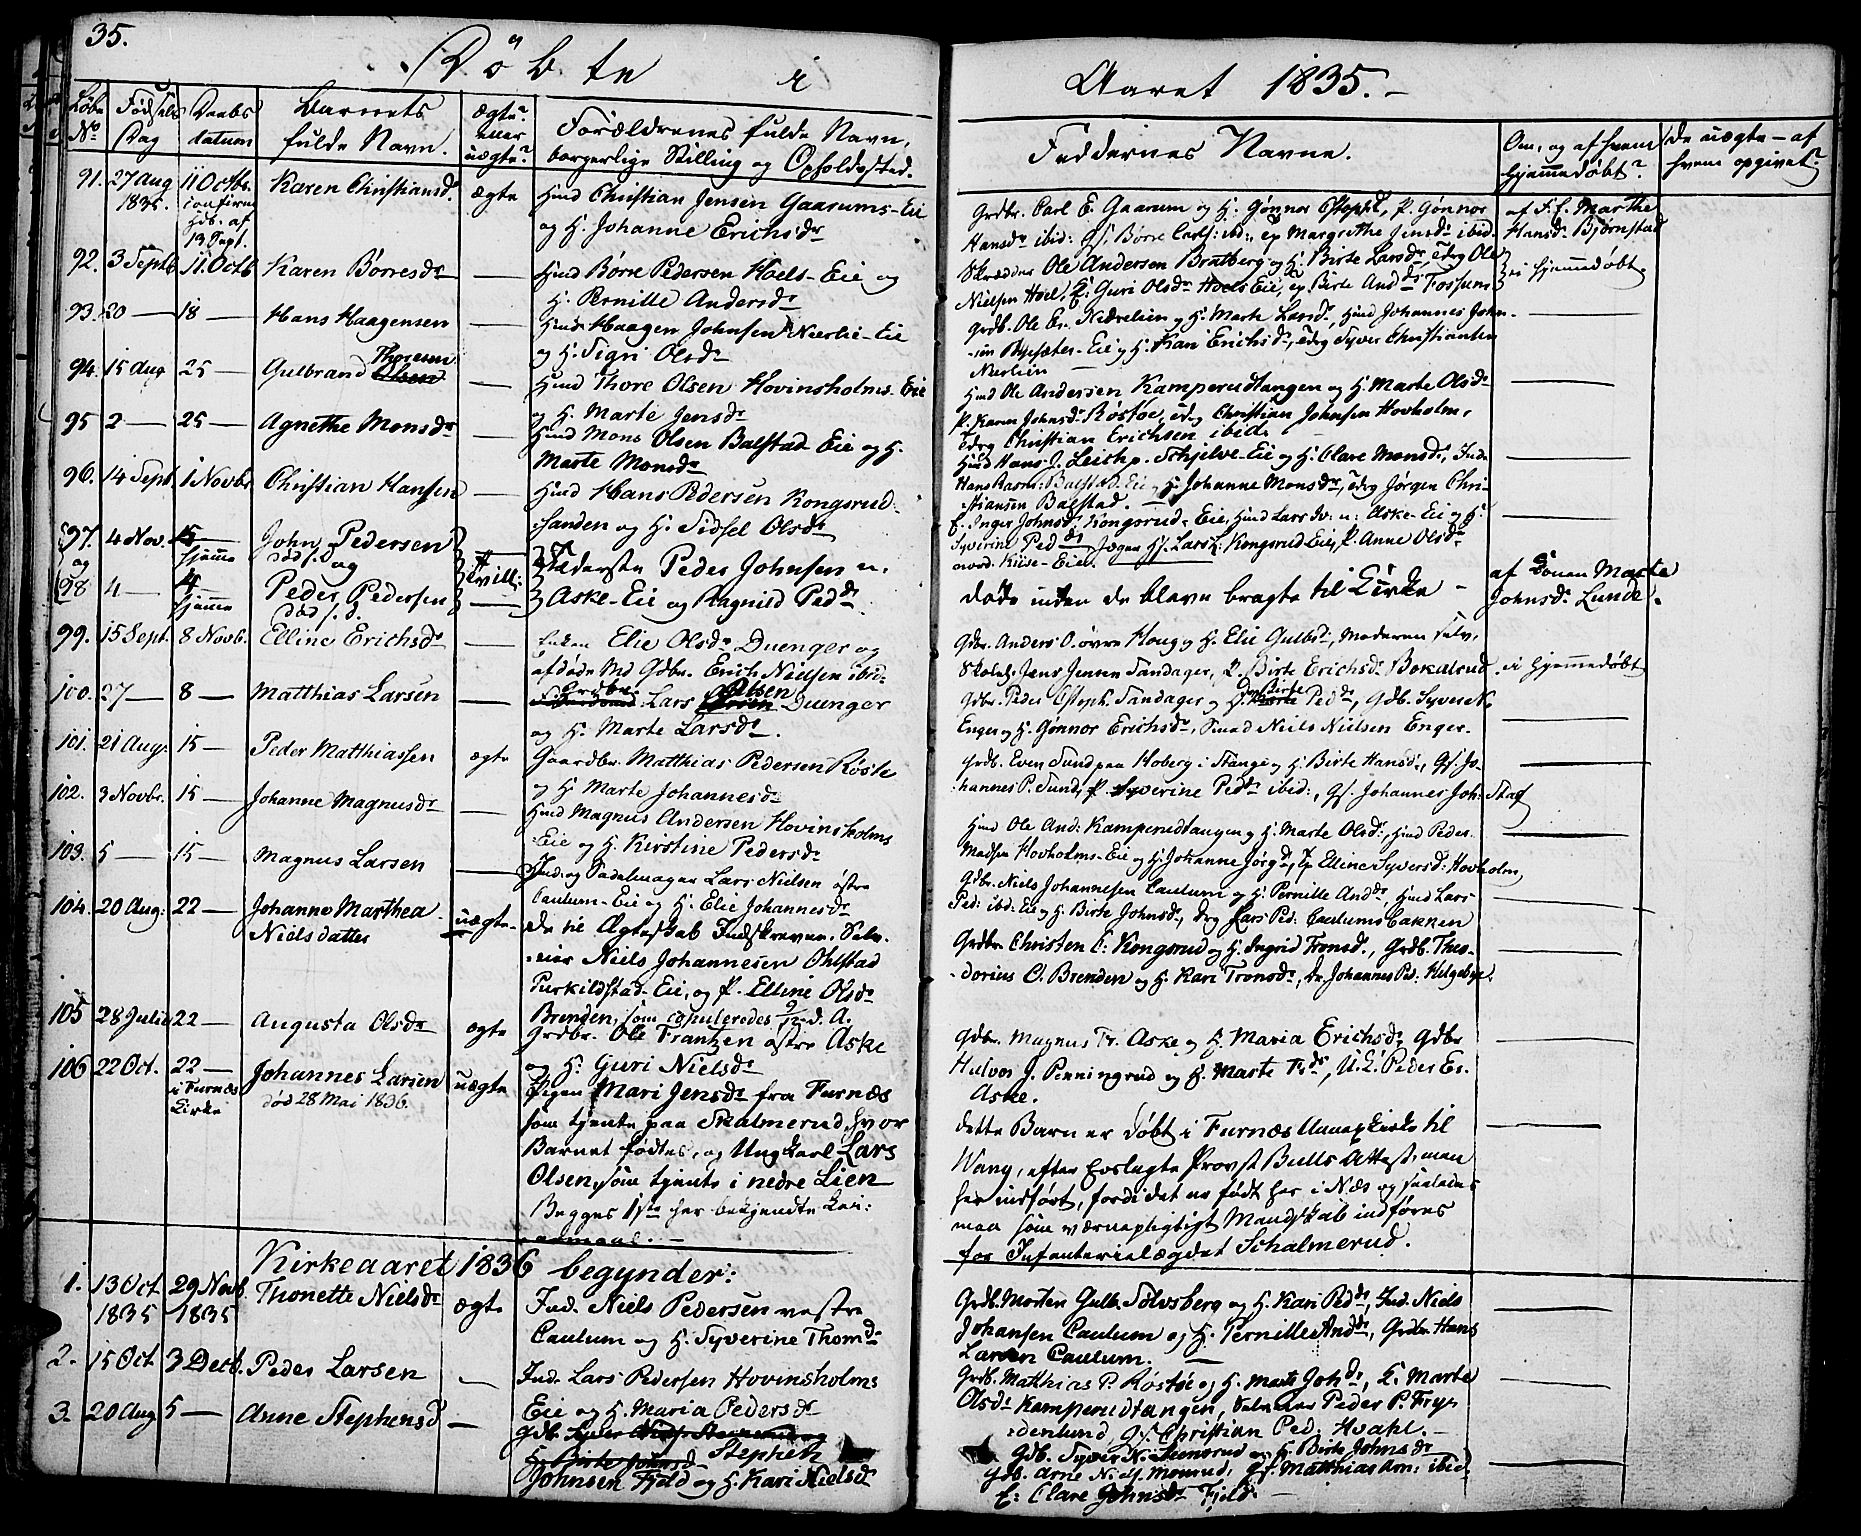 35.
Döbte i
Aaret 1835.
Löbe No
Födsels Dag
Daabs datum
Barnets fulde Navn.
ægte? eller uægte?
Forældrenes fulde Navn, borgerlige Stilling og Opholdssted.
Faddernes Navne.
Om, og af hvem hjemmedøbt?
De uægte – af hvem opgivet?
91. 27 Aug 1835. 11 Octbr. confirm hdb. af 13 Sept. Karen Christiansdr ægte
Huusmd Christian Jensen Gaarums-Eie
og H. Johanne Erichsdr
Grdbr. Carl E. Gaarum og H. Gönnor Ostophsd, P. Gönnor
Hansdr ibid: Margrethe Jensdr ibid.
af J. f. Marthe
Hansdr Björnstad
92. 3 Septb 11. Octb Karen Börresdr —
Huusmd Börre Pedersen Hoels-Eie og
H. Pernille Andersdr
Skrædder Ole Andersen Bratberg og H. Birte Larsdr, Ole
Nielsen Hoel, E. Guri Olsdr Hoels Eie, Birte Anddr Fossum
hjemmedöbt.
93. 20 — 18 — Hans Haagensen —
Haagen Johnsen Nærlie-Eie
og H. Sigri Olsdr
Grdb. Ole Er. Nærelien og H. Marte Larsdr, Huusmd Johannes John-
-sen Eie og H. Kari Erichsdr, Syver Christiansen
Nærlien
94. 15 Aug 25 — Gulbrand Thoresen —
Huusmd Thore Olsen Hovinsholms-Eie
og H. Marte Jensdr
Huusmd Ole Andersen Kamperudtangen og H. Marte Olsdr
P. Karen Johnsdr Röstöe, Christian Johnsen Hovholm,
Christian Erichsen ibid.
95 2 — 25 — Agnethe Monsdr —
Huusmd Mons Olsen Balstad Eie og H.
Marte Monsdr
Hans J. Schjelve-Eie og H. Clare Monsdr,
Balstad-Eie og H. Johanne Monsdr, Jörgen Chri-
-stiansen Balstad.
96. 14 Sept. 1 Novbr Christian Hansen —
Huusmd Hans Pedersen Kongsrud-
-sanden og H. Sidsel Olsdr
E. Inger Johnsdr Kongsrud-Eie, Huusmd Lars Aske-Eie og H.
Syverine Peddr Kongsrud Eie, P. Anne Olsdr
97. 4 Nov. hjemme John Pedersen död s.d. og
og
98 4 — 4 hjemme Peder Pedersen Död s.d.
Tvill:
Peder Johnsen
Aske-Eie og Ragnild Peddr
döde inden de bleve bragte til Kirke –
af Konen Marte
Johnsdr Lunde.
99. 15 Sept. 8 Novb. Elline Erichsdr —
Enken Elie Olsdr Duenger og
afdöde Md Gdbr. Erich Nielsen ibid.
Gdbr. Anders O. övre Houg og H. Elie Gulbdr, Moderen selv,
Skolel. Jens Jensen Sandager, P. Birte Erichsdr Bekalrud
hjemmedöbt
100. 27 — 8 — Matthias Larsen —
Grdbr. Lars Olsen Duenger
og H. Marte Larsdr.
Gdbr. Peder Sandager og H. Birte Peddr, Gdb. Syver N.
Enger og H. Gönnor Erichsdr. Niels Nielsen Enger.
101. 21 Aug. 15 — Peder Matthiassen ægte
Gaardbr. Matthias Pedersen Röste
og H. Marte Johannesdr
Grdb. Even Sund paa Hoberg i Stange og H. Birte Hansdr, Gs. Jo-
-hannes P. Sund, P. Syverine Peddr ibid:, Gs. Johannes Joh: Staf
102. 3 Novbr. 15 — Johanne Magnusdr —
Huusmd Magnus Andersen Hovinsholms
-Eie og H. Kirstine Pedersdr
Huusmd Ole And: Kamperudtangen og H. Marte Olsdr, Huusmd Peder
Madsen Hovholms-Eie og H. Johanne Jörgdr, Elline Syversdr Hovholm,
103. 5 — 15 — Magnus Larsen —
Ind. og Sadelmager Lars Nielsen östre
Caulum-Eie og H. Elie Johannesdr
Gdbr. Niels Johannesen Caulum og H. Pernille Anddr, Huusmd Lars
Ped: ibid: Eie og H. Birte Johnsdr, Lars Ped: Caulumsbakken
104. 20 Aug: 22 — Johanne Marthea Nielsdatter uægte
De til Ægteskab Indskrevne, Selv-
-eier Niels Johannesen Ohlstad
Turkildstad-Eie, og P. Elline Olsdr
Brenden, som copuleredes 9/12 d. A.
Grdbr. Christen C. Kongsrud og H. Ingrid Tronsdr, Grdb. Theo-
-dorius O. Brenden og H. Kari Tronsdr, Dr. Johannes Ped: Helgebye.
105 28 Julii 22 — Augusta Olsdr ægte
Grdbr. Ole Frantzen östre Aske
og H. Guri Nielsdr
Gdbr. Magnus Fr. Aske og H. Maria Erichsdr, Gdbr
Halvor J. Penningrud og H. Marte Frdr, U.K. Peder Er.
Aske.
106 22 Oct. 22 — i Furnæs Kirke Johannes Larsen död 28 Mai 1836. uægte
Pigen Mari Jensdr fra Furnæs
som tjente paa Skalmerud, hvor
Barnet födtes, og Ungkarl Lars
Olsen, som tjente i nedre Lien
Begges 1ste her bekjendte Leier-
maal.
dette Barn er döbt i Furnæs Annexkirke til
Wang, efter Provst Bulls Attest, men
her indfört, fordi det er födt her i Næs og saaledes
maa som værnepligtigt Mandskab indföres
for Infanterielægdet Schalmerud.
Kirkeaaret 1836 begynder:
1. 13 Oct 1835 29 Novb. 1835 Thonette Nielsdr ægte
Ind. Niels Pedersen vestre
Caulum og H. Syverine Thomdr
Grdb. Morten Gulbr. Sölvsberg og H. Kari Peddr, Ind. Niels
Johansen Caulum og H. Pernille Anddr, Grdbr Hans
Larsen Caulum.
2. 15 Oct 3 Decb. Peder Larsen —
Ind. Lars Pedersen Hovinsholms
Eie og H. Maria Pedersdr
Grdb. Matthias P. Röstöe og H. Marte Johdr, E. Marte
Olsdr Kamperudtangen, Peder P. Fry-
-denlund, Gs. Christian Ped: Hvahl.
3. 20 Aug 5 — Anne Stephensd —
Gdb. Stephen
Johnsen Fjeld og H. Kari Nielsdr
Gdb. Syver N. og H. Birte Johnsdr
Gdb. Arne Gs. Matthias Arn: ibid,
E: Clare Johnsdr Fjeld.